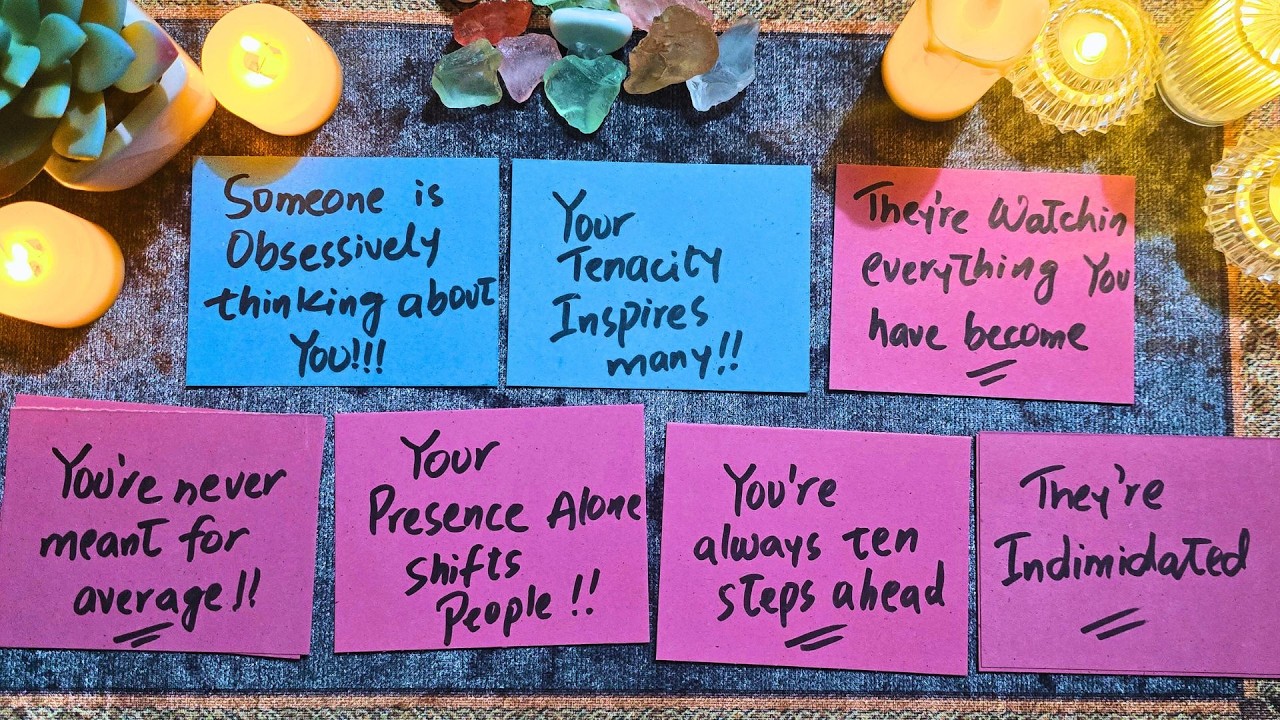 Someone is
Obsessively
thinking about
You!!!
Your
Tenacity
Inspires
many!!
They're Watchin
everything You
have become
You're never
meant for
average!!
Your
Presence Alone
shifts
People !!
You're
always ten
steps ahead
They're
Indimidated